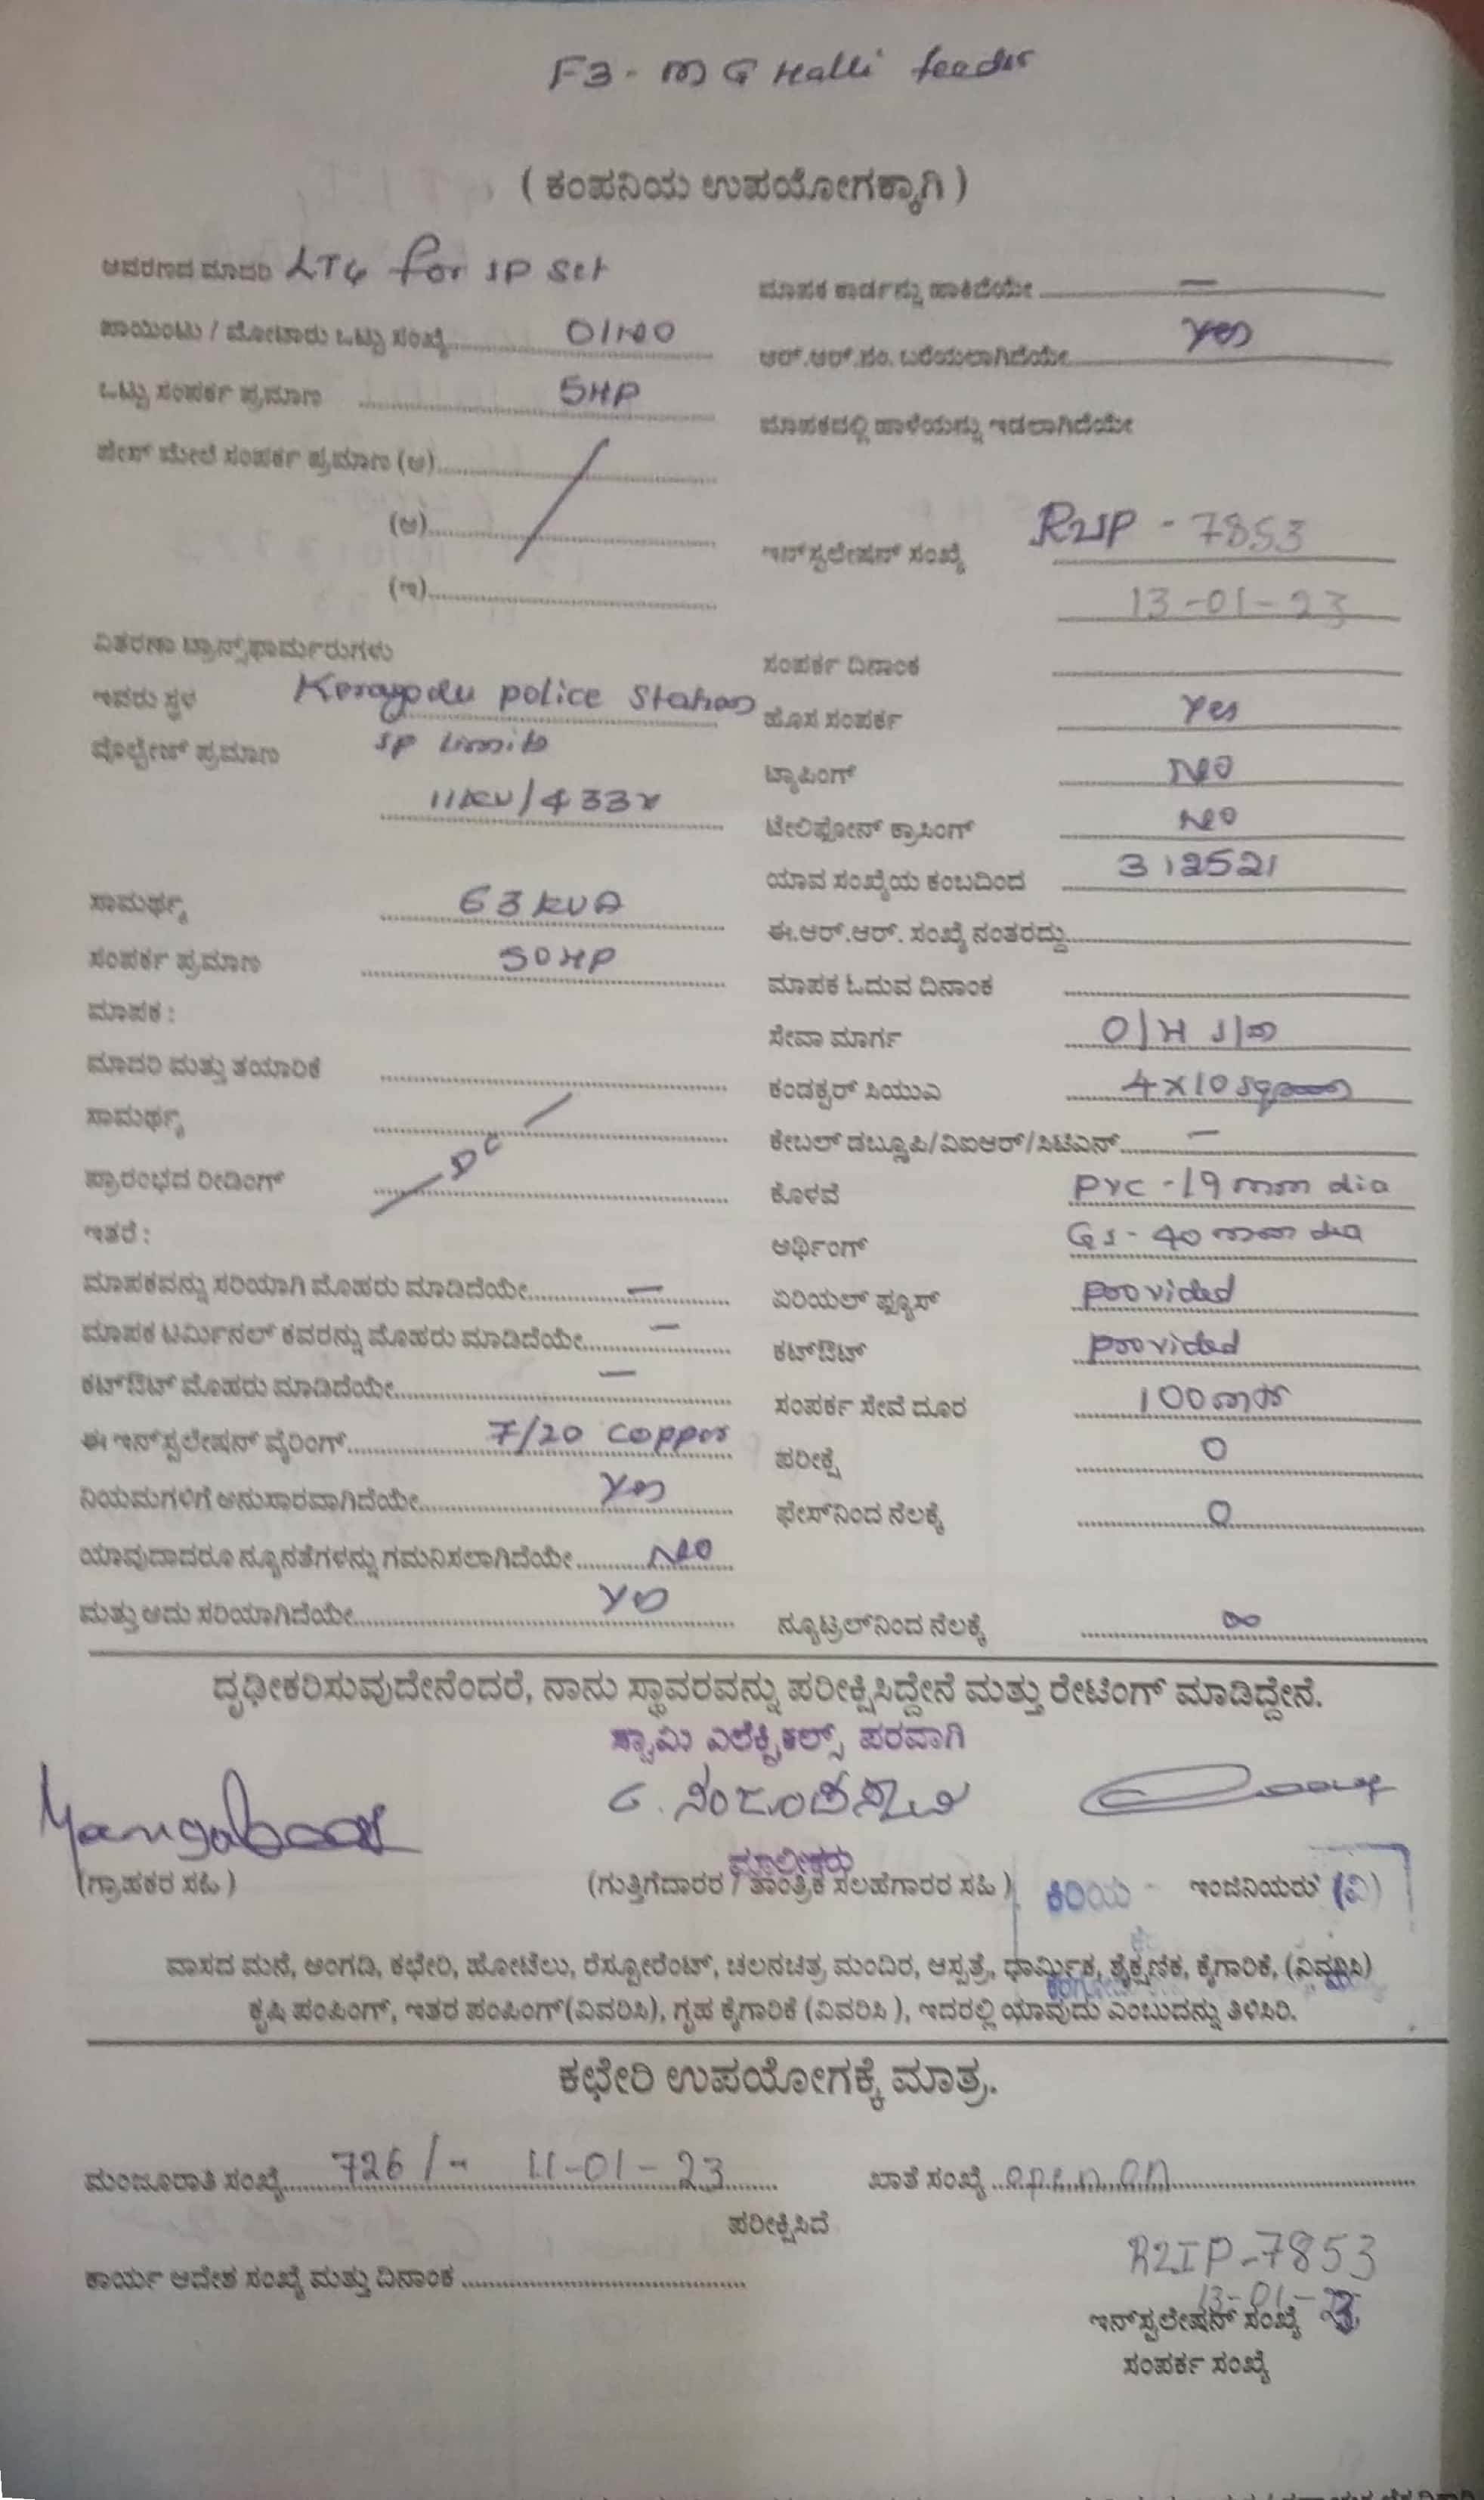 F3 - M G Halli feeder
( ಕಂಪನಿಯ ಉಪಯೋಗಕ್ಕಾಗಿ )
ಆವರಣದ ಮಾದರಿ LT4 for IP Set
ಪಾಯಿಂಟು / ಮೋಟಾರು ಒಟ್ಟು ಸಂಖ್ಯೆ 01NO
ಒಟ್ಟು ಸಂಪರ್ಕ ಪ್ರಮಾಣ 5HP
ಪೇಸ್ ಮೇಲೆ ಸಂಪರ್ಕ ಪ್ರಮಾಣ (ಅ)
(ಆ)
(ಇ)
ವಿತರಣಾ ಟ್ರಾನ್ಸ್‌ಫಾರ್ಮರುಗಳು
ಇವರು ಸ್ಥಳ Keragodu police Station
IP Limits
ವೋಲ್ಟೇಜ್ ಪ್ರಮಾಣ
11KV/433V
ಸಾಮರ್ಥ್ಯ 63 KVA
ಸಂಪರ್ಕ ಪ್ರಮಾಣ 50HP
ಮಾಪಕ :
ಮಾದರಿ ಮತ್ತು ತಯಾರಿಕೆ
ಸಾಮರ್ಥ್ಯ
— DC —
ಪ್ರಾರಂಭದ ರೀಡಿಂಗ್
ಇತರೆ :
ಮಾಪಕವನ್ನು ಸರಿಯಾಗಿ ಮೊಹರು ಮಾಡಿದೆಯೇ —
ಮಾಪಕ ಟರ್ಮಿನಲ್ ಕವರನ್ನು ಮೊಹರು ಮಾಡಿದೆಯೇ —
ಕಟ್‌ಔಟ್ ಮೊಹರು ಮಾಡಿದೆಯೇ —
ಈ ಇನ್‌ಸ್ಟಲೇಷನ್ ವೈರಿಂಗ್ 7/20 copper
ನಿಯಮಗಳಿಗೆ ಅನುಸಾರವಾಗಿದೆಯೇ Yes
ಯಾವುದಾದರೂ ನ್ಯೂನತೆಗಳನ್ನು ಗಮನಿಸಲಾಗಿದೆಯೇ NO
ಮತ್ತು ಅದು ಸರಿಯಾಗಿದೆಯೇ Yes
ಮಾಪಕ ಕಾರ್ಡನ್ನು ಹಾಕಿದೆಯೇ —
ಆರ್.ಆರ್.ನಂ. ಬರೆಯಲಾಗಿದೆಯೇ Yes
ಮಾಪಕದಲ್ಲಿ ಹಾಳೆಯನ್ನು ಇಡಲಾಗಿದೆಯೇ
ಇನ್‌ಸ್ಟಲೇಷನ್ ಸಂಖ್ಯೆ R2IP - 7853
13-01-23
ಸಂಪರ್ಕ ದಿನಾಂಕ
ಹೊಸ ಸಂಪರ್ಕ Yes
ಟ್ಯಾಪಿಂಗ್ NO
ಟೇಲಿಫೋನ್ ಕ್ರಾಸಿಂಗ್ NO
ಯಾವ ಸಂಖ್ಯೆಯ ಕಂಬದಿಂದ 312521
ಈ.ಆರ್.ಆರ್. ಸಂಖ್ಯೆ ನಂತರದ್ದು
ಮಾಪಕ ಓದುವ ದಿನಾಂಕ
ಸೇವಾ ಮಾರ್ಗ O/H
ಕಂಡಕ್ಟರ್ ಸಿಯುಎ 4x10 sqmm
ಕೇಬಲ್ ಡಬ್ಲ್ಯೂಪಿ/ವಿಐಆರ್/ಸಿಟಿಎಸ್ —
ಕೊಳವೆ PVC - 19mm dia
ಆರ್ಥಿಂಗ್ GI - 40mm dia
ಏರಿಯಲ್ ಫ್ಯೂಸ್ provided
ಕಟ್‌ಔಟ್ provided
ಸಂಪರ್ಕ ಸೇವೆ ದೂರ 100
ಪರೀಕ್ಷೆ 0
ಫೇಸ್‌ನಿಂದ ನೆಲಕ್ಕೆ 0
ನ್ಯೂಟ್ರಲ್‌ನಿಂದ ನೆಲಕ್ಕೆ ∞
ದೃಢೀಕರಿಸುವುದೇನೆಂದರೆ, ನಾನು ಸ್ಥಾವರವನ್ನು ಪರೀಕ್ಷಿಸಿದ್ದೇನೆ ಮತ್ತು ರೇಟಿಂಗ್ ಮಾಡಿದ್ದೇನೆ.
ಸ್ವಾಮಿ ಎಲೆಕ್ಟ್ರಿಕಲ್ಸ್ ಪರವಾಗಿ
ಮಾಲೀಕರು
(ಗ್ರಾಹಕರ ಸಹಿ ) (ಗುತ್ತಿಗೆದಾರರ / ತಾಂತ್ರಿಕ ಸಲಹೆಗಾರರ ಸಹಿ ) ಕಿರಿಯ ಇಂಜಿನಿಯರು (ವಿ)
ವಾಸದ ಮನೆ, ಅಂಗಡಿ, ಕಛೇರಿ, ಹೋಟೆಲು, ರೆಸ್ಟೋರೆಂಟ್, ಚಲನಚಿತ್ರ ಮಂದಿರ, ಆಸ್ಪತ್ರೆ, ಧಾರ್ಮಿಕ, ಶೈಕ್ಷಣಿಕ, ಕೈಗಾರಿಕೆ, (ವಿವರಿಸಿ)
ಕೃಷಿ ಪಂಪಿಂಗ್, ಇತರ ಪಂಪಿಂಗ್(ವಿವರಿಸಿ), ಗೃಹ ಕೈಗಾರಿಕೆ (ವಿವರಿಸಿ ), ಇದರಲ್ಲಿ ಯಾವುದು ಎಂಬುದನ್ನು ತಿಳಿಸಿರಿ.
ಕಛೇರಿ ಉಪಯೋಗಕ್ಕೆ ಮಾತ್ರ.
ಮಂಜೂರಾತಿ ಸಂಖ್ಯೆ 726/- 11-01-23 ಖಾತೆ ಸಂಖ್ಯೆ open on
ಪರೀಕ್ಷಿಸಿದೆ
ಕಾರ್ಯ ಆದೇಶ ಸಂಖ್ಯೆ ಮತ್ತು ದಿನಾಂಕ
R2IP-7853
13-01-23
ಇನ್‌ಸ್ಟಲೇಷನ್ ಸಂಖ್ಯೆ
ಸಂಪರ್ಕ ಸಂಖ್ಯೆ